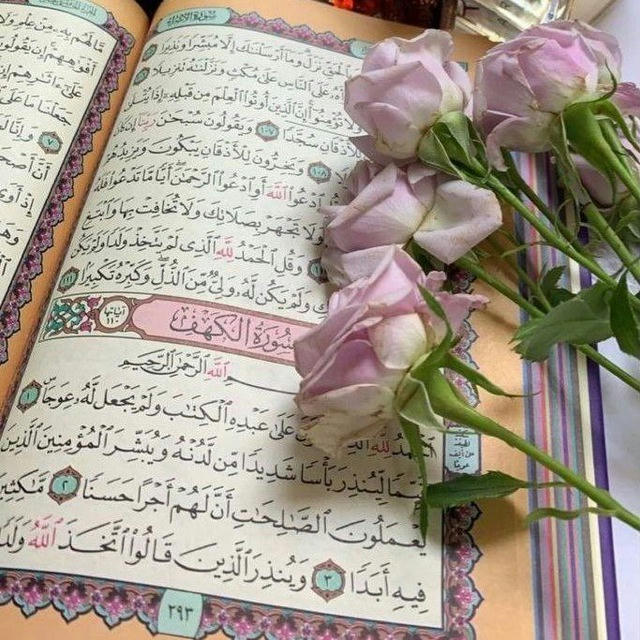 سُورَةُ الإِسْرَاءِ
نَزَلَ وَمَآ أَرْسَلْنَٰكَ إِلَّا مُبَشِّرًا وَنَذِيرًا
عَلَى ٱلنَّاسِ عَلَىٰ مُكْثٍ وَنَزَّلْنَٰهُ تَنزِيلًا
إِنَّ ٱلَّذِينَ أُوتُوا۟ ٱلْعِلْمَ مِن قَبْلِهِۦٓ إِذَا يُتْلَىٰ
سُجَّدًا ١٠٧ وَيَقُولُونَ سُبْحَٰنَ رَبِّنَآ إِن كَانَ
١٠٨ وَيَخِرُّونَ لِلْأَذْقَانِ يَبْكُونَ وَيَزِيدُهُمْ
ٱدْعُوا۟ ٱللَّهَ أَوِ ٱدْعُوا۟ ٱلرَّحْمَٰنَ أَيًّا مَّا تَدْعُوا۟ فَلَهُ
وَلَا تَجْهَرْ بِصَلَاتِكَ وَلَا تُخَافِتْ بِهَا وَٱبْتَغِ
وَقُلِ ٱلْحَمْدُ لِلَّهِ ٱلَّذِى لَمْ يَتَّخِذْ وَلَدًا وَلَمْ يَكُن
وَلَمْ يَكُن لَّهُۥ وَلِىٌّ مِّنَ ٱلذُّلِّ وَكَبِّرْهُ تَكْبِيرًا ١١١
سُورَةُ الكَهْفِ
ٱللَّهِ ٱلرَّحْمَٰنِ ٱلرَّحِيمِ
لِلَّهِ عَلَىٰ عَبْدِهِ ٱلْكِتَٰبَ وَلَمْ يَجْعَل لَّهُۥ عِوَجَا ١
لِّيُنذِرَ بَأْسًا شَدِيدًا مِّن لَّدُنْهُ وَيُبَشِّرَ ٱلْمُؤْمِنِينَ ٱلَّذِينَ
يَعْمَلُونَ ٱلصَّٰلِحَٰتِ أَنَّ لَهُمْ أَجْرًا حَسَنًا ٢ مَّٰكِثِينَ
فِيهِ أَبَدًا ٣ وَيُنذِرَ ٱلَّذِينَ قَالُوا۟ ٱتَّخَذَ ٱللَّهُ وَلَدًا
٢٩٣
مَّا لَهُم بِهِۦ مِنْ عِلْمٍ وَلَا
أَفْوَٰهِهِمْ إِن يَقُولُونَ
عَلَىٰٓ ءَاثَٰرِهِمْ إِن
جَعَلْنَا مَا عَلَى
٧ وَإِنَّا
أَنَّ
إِذْ أَوَى